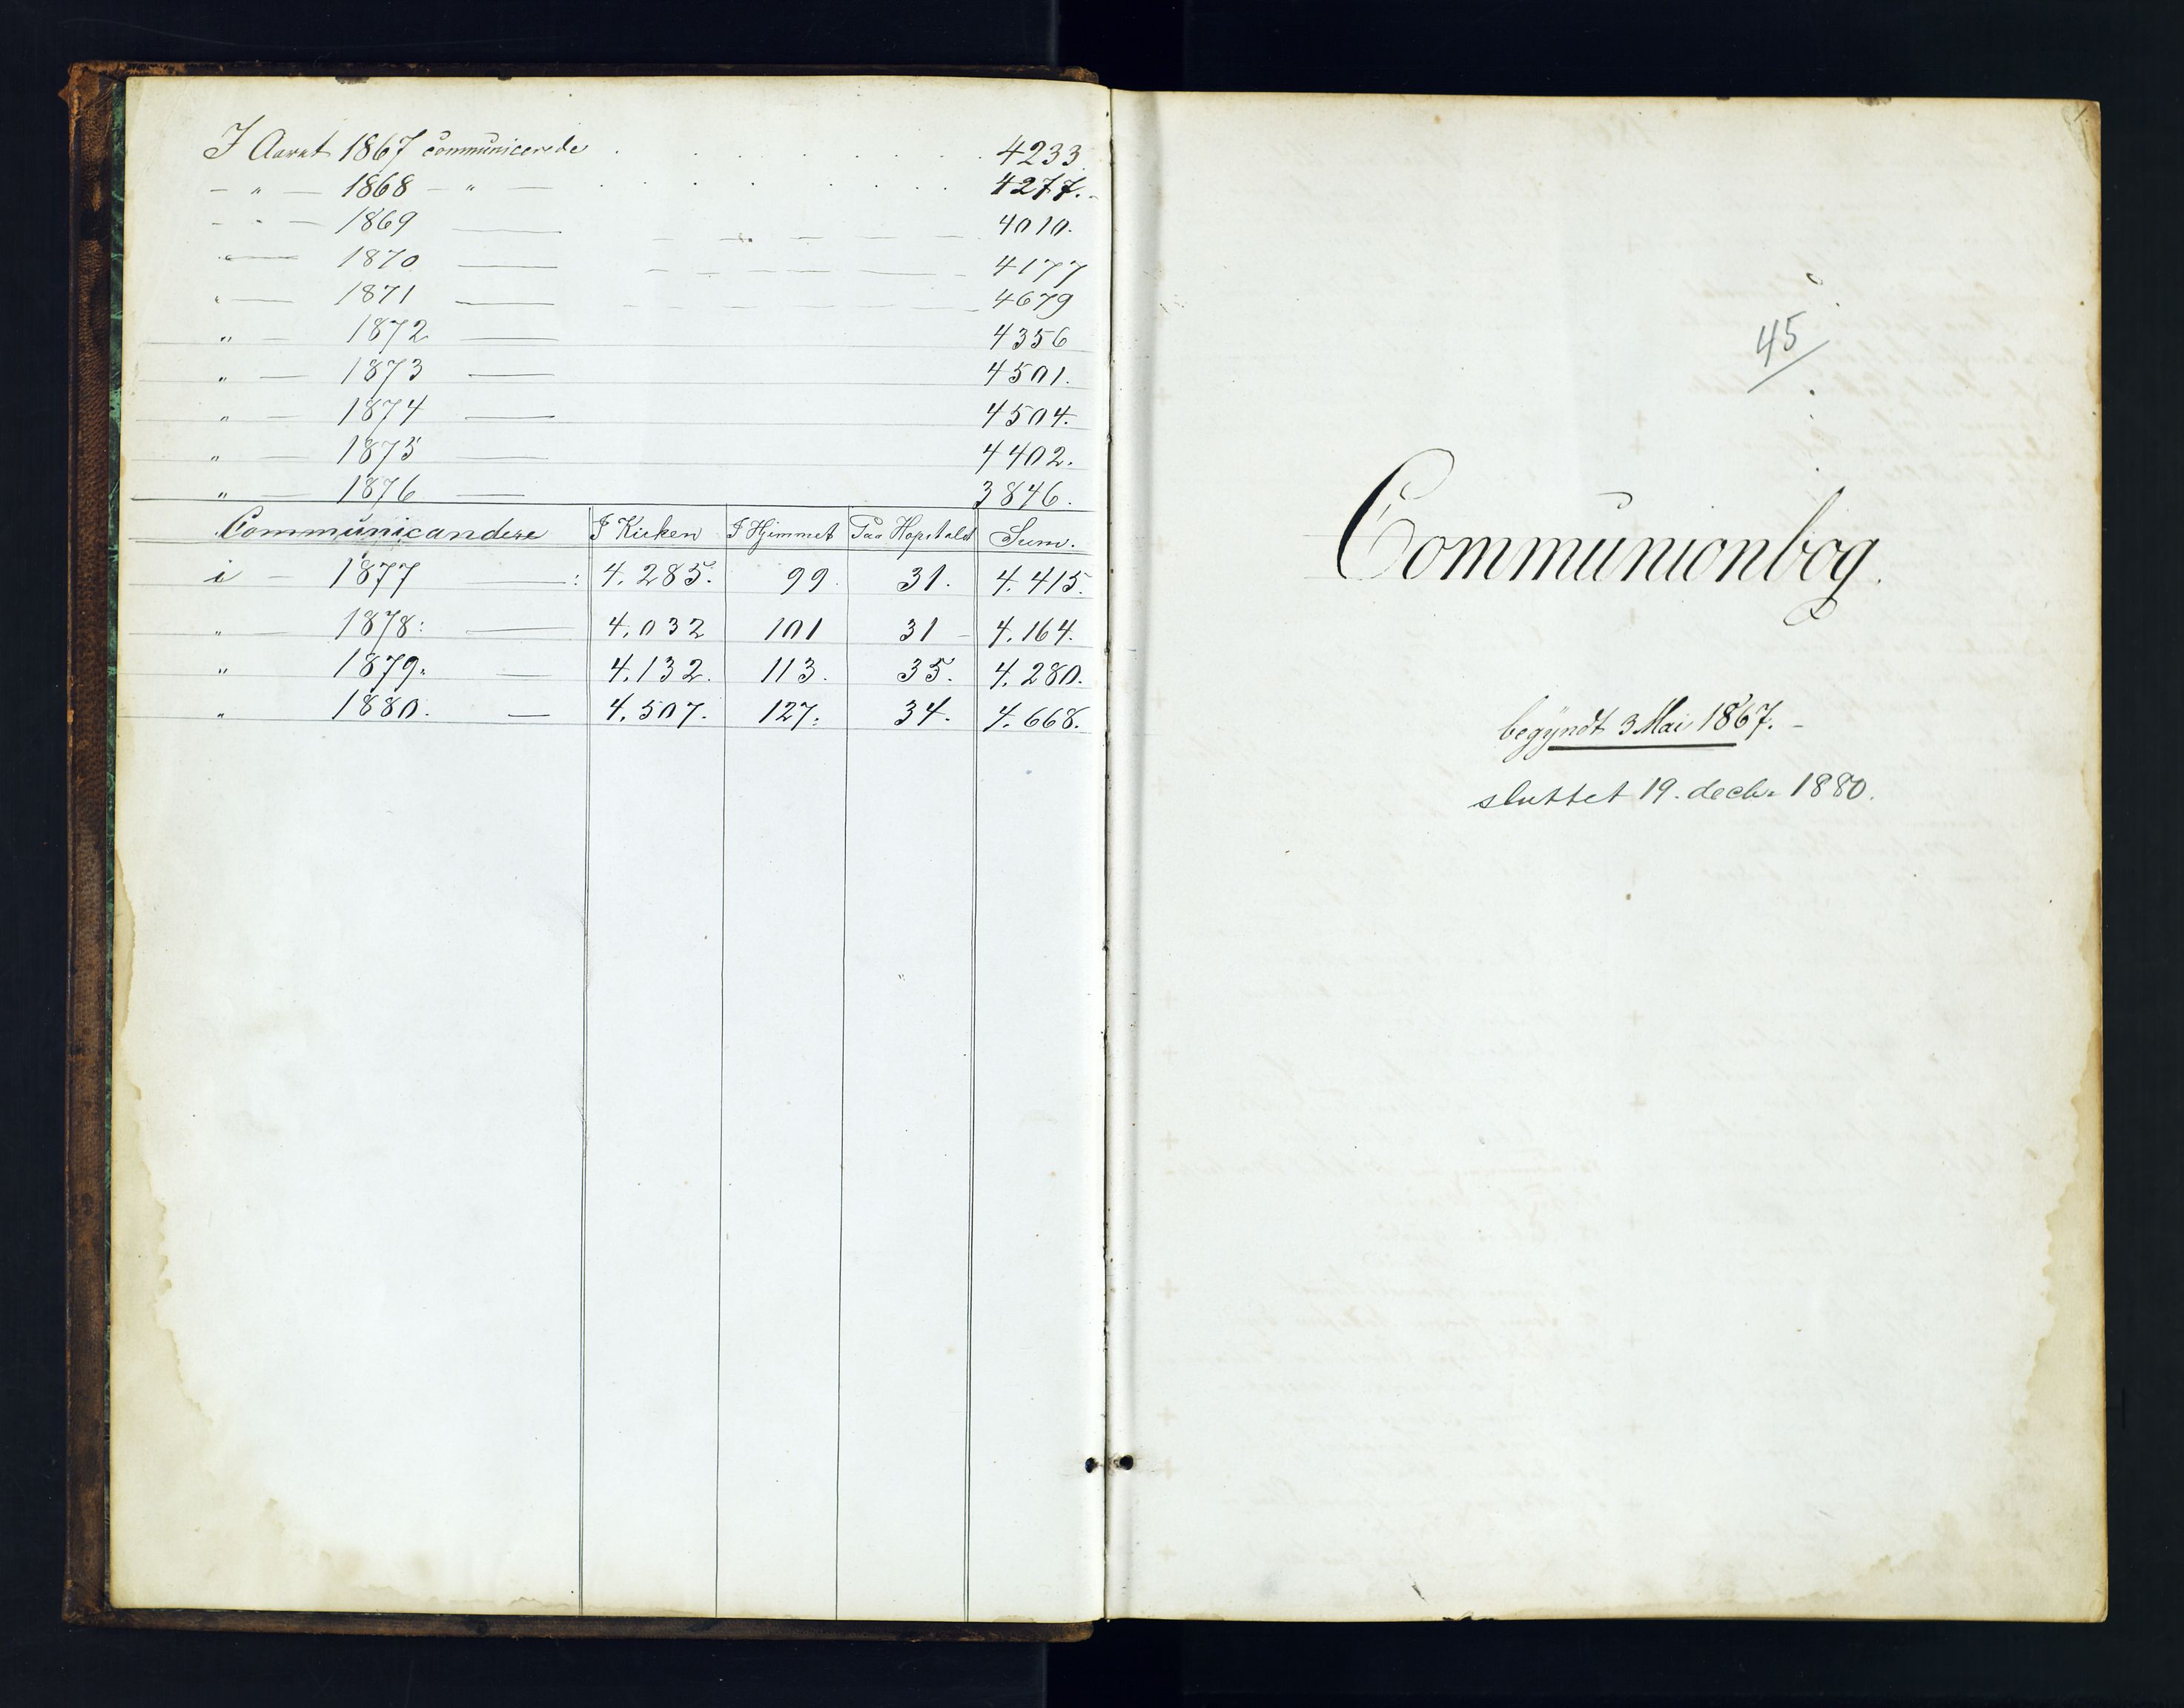 I Aaret 1867 communicerede . . . . . . . . . 4233
- " - 1868 - " - . . . . . . . . . 4277.-
- " - 1869 — - - - - - - 4010.
" — 1870 — - - - - - - 4177
" — 1871 — - - - - - - 4679
" — 1872 — 4356
" — 1873 — 4501.
" — 1874 — 4504.
" — 1875 — 4402.
" — 1876 — 3846.
Communicandere I Kirken I Hjemmet Paa Hospitalet Sum.
i - 1877 — : 4.285. 99. 31. 4.415.
" — 1878: — 4.032 101 31 - 4.164.
" 1879. — 4.132. 113. 35. 4.280.
" 1880. — 4.507. 127. 34. 4.668.
45
Communionbog.
begyndt 3 Mai 1867. -
sluttet 19. decbr 1880.